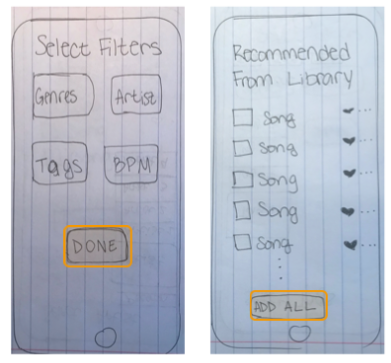 Select Filters
Genres
Artist
Tags
BPM
DONE
Recommended
From Library
Song
Song
Song
Song
Song
ADD ALL